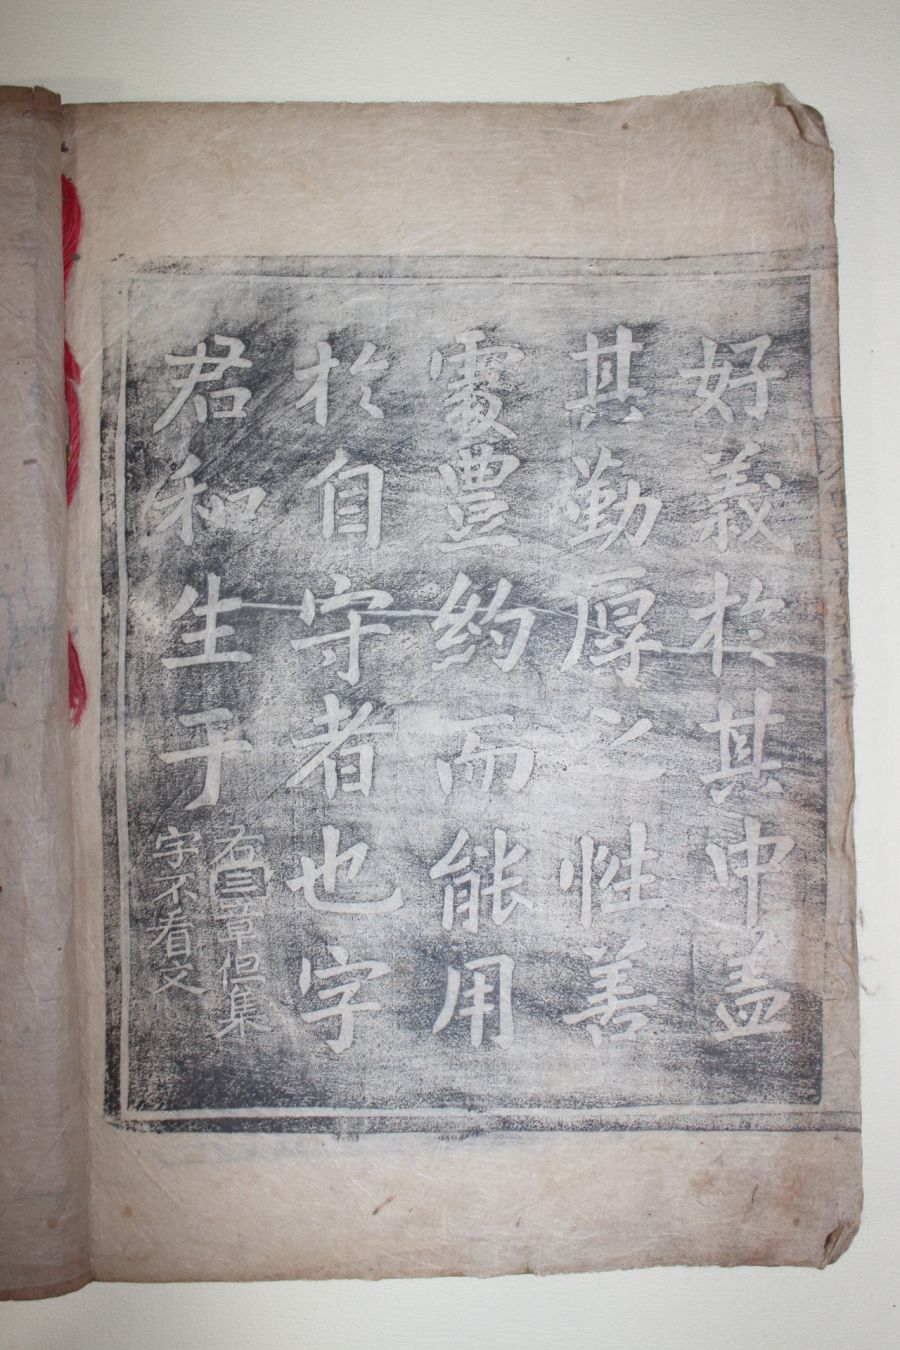 好義於其中盖
其勤厚之性善
處豊約而能用
於自守者也字
君和生于
右三草但集
字不看文